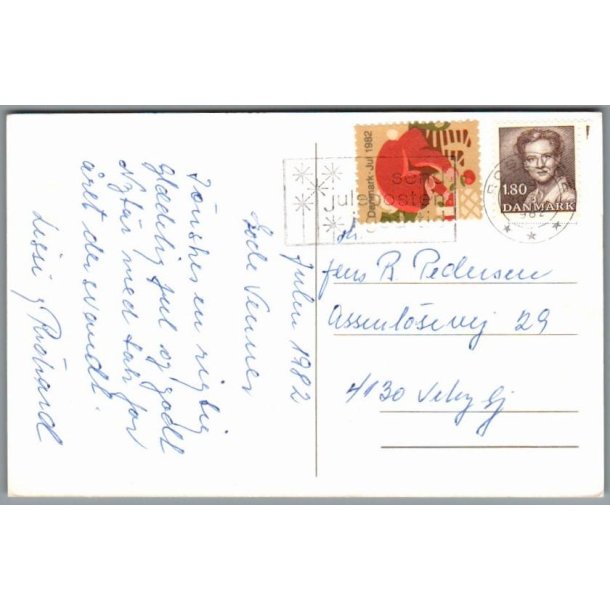 Julen 1982
Søde Venner
I ønskes en rigtig
Glædelig Jul og godt
Nytår med tak for
året der svandt.
Lissi og Richard
Danmark · Jul 1982
send
juleposten
1.80
DANMARK
Hr.
Jens B Pedersen
Assenløsevej 29
4130 Viby Sj